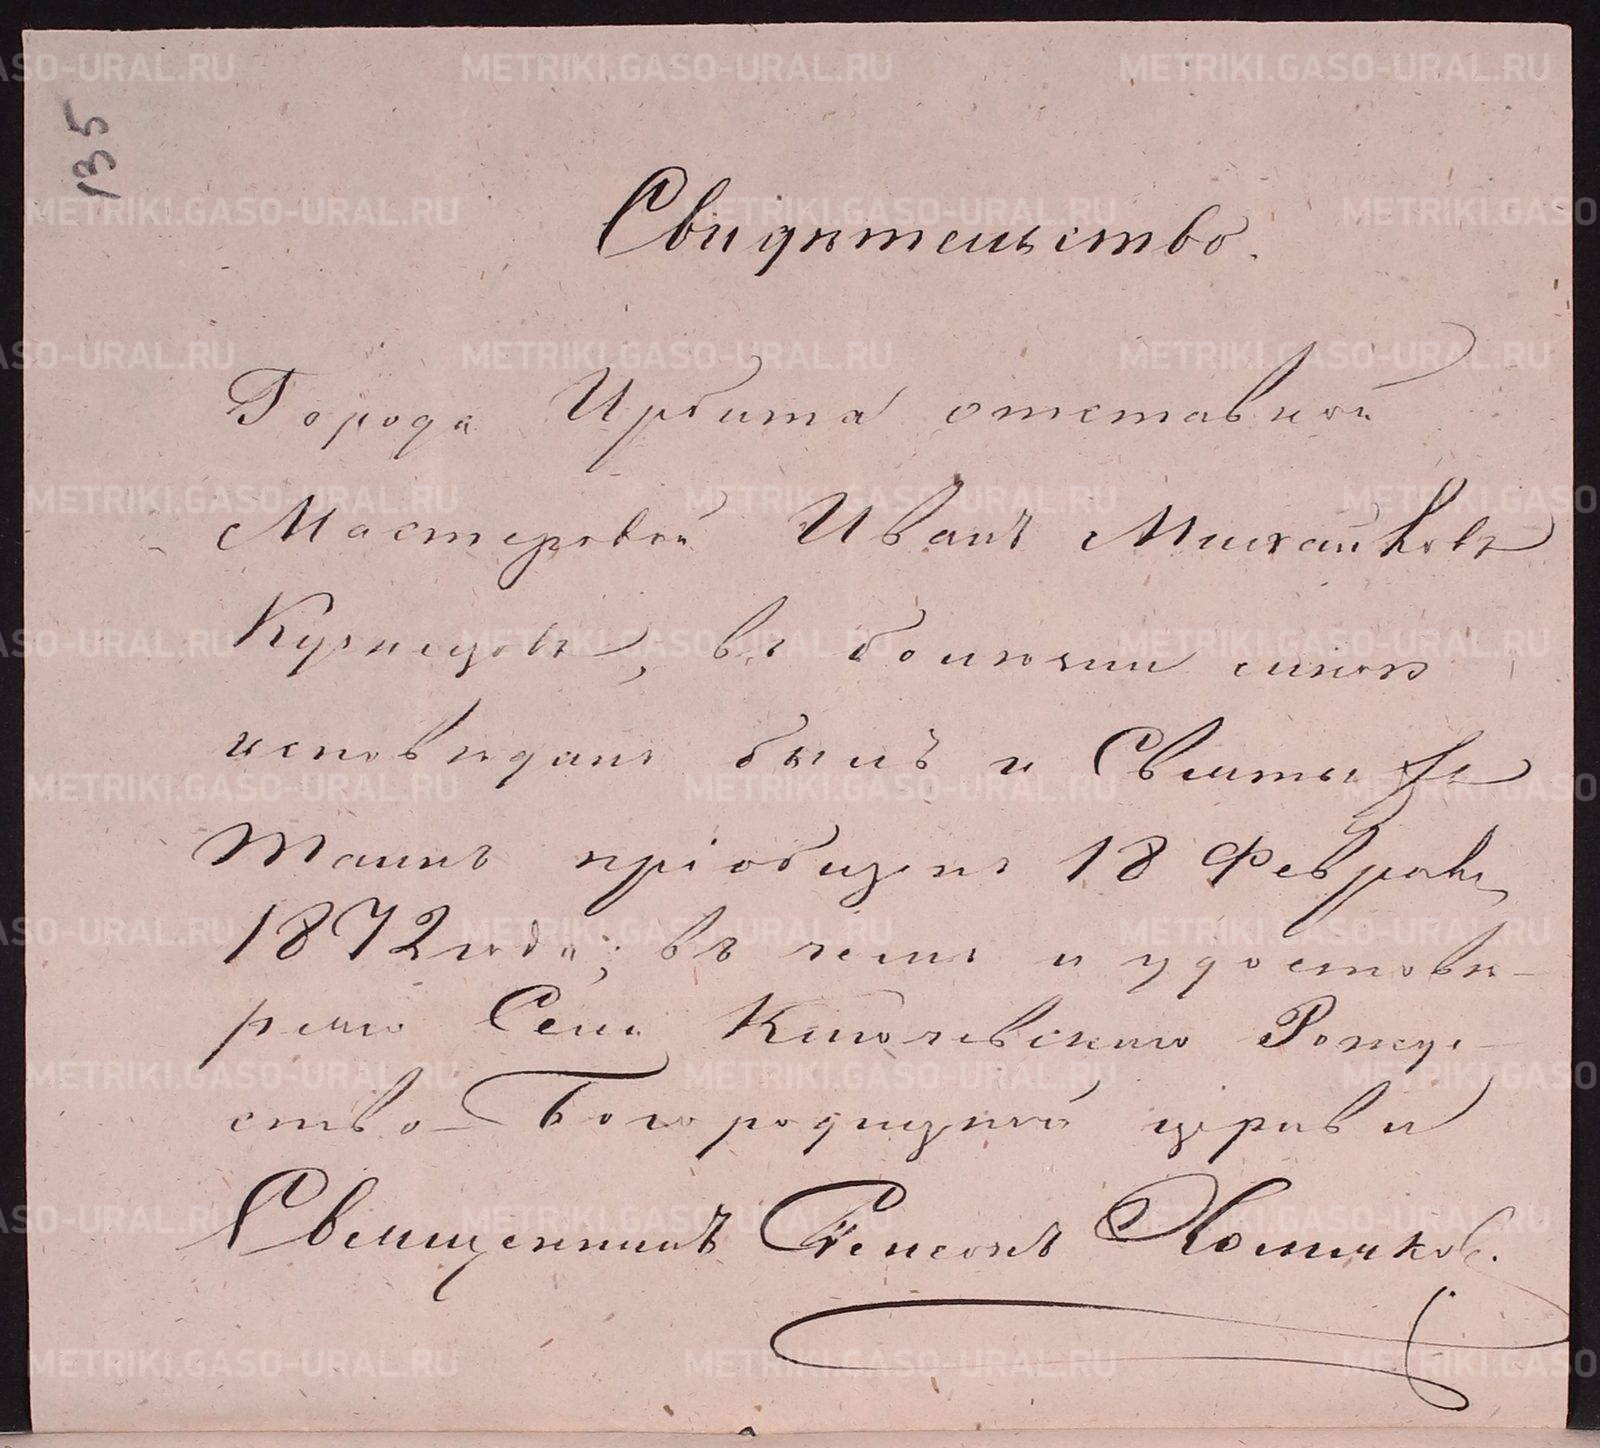 135
Свидѣтельство.
Города Ирбита отставной
Мастеровой Иванъ Михайловъ
Кузнецовъ, въ болѣзни мною
исповѣданъ былъ и Святыхъ
Таинъ пріобщенъ 18 Февраля
1872 года; въ чемъ и удостовѣ-
ряю Села Ключевскаго Рожде-
ство-Богородицкой церкви
Священникъ Симеонъ Хомяковъ.